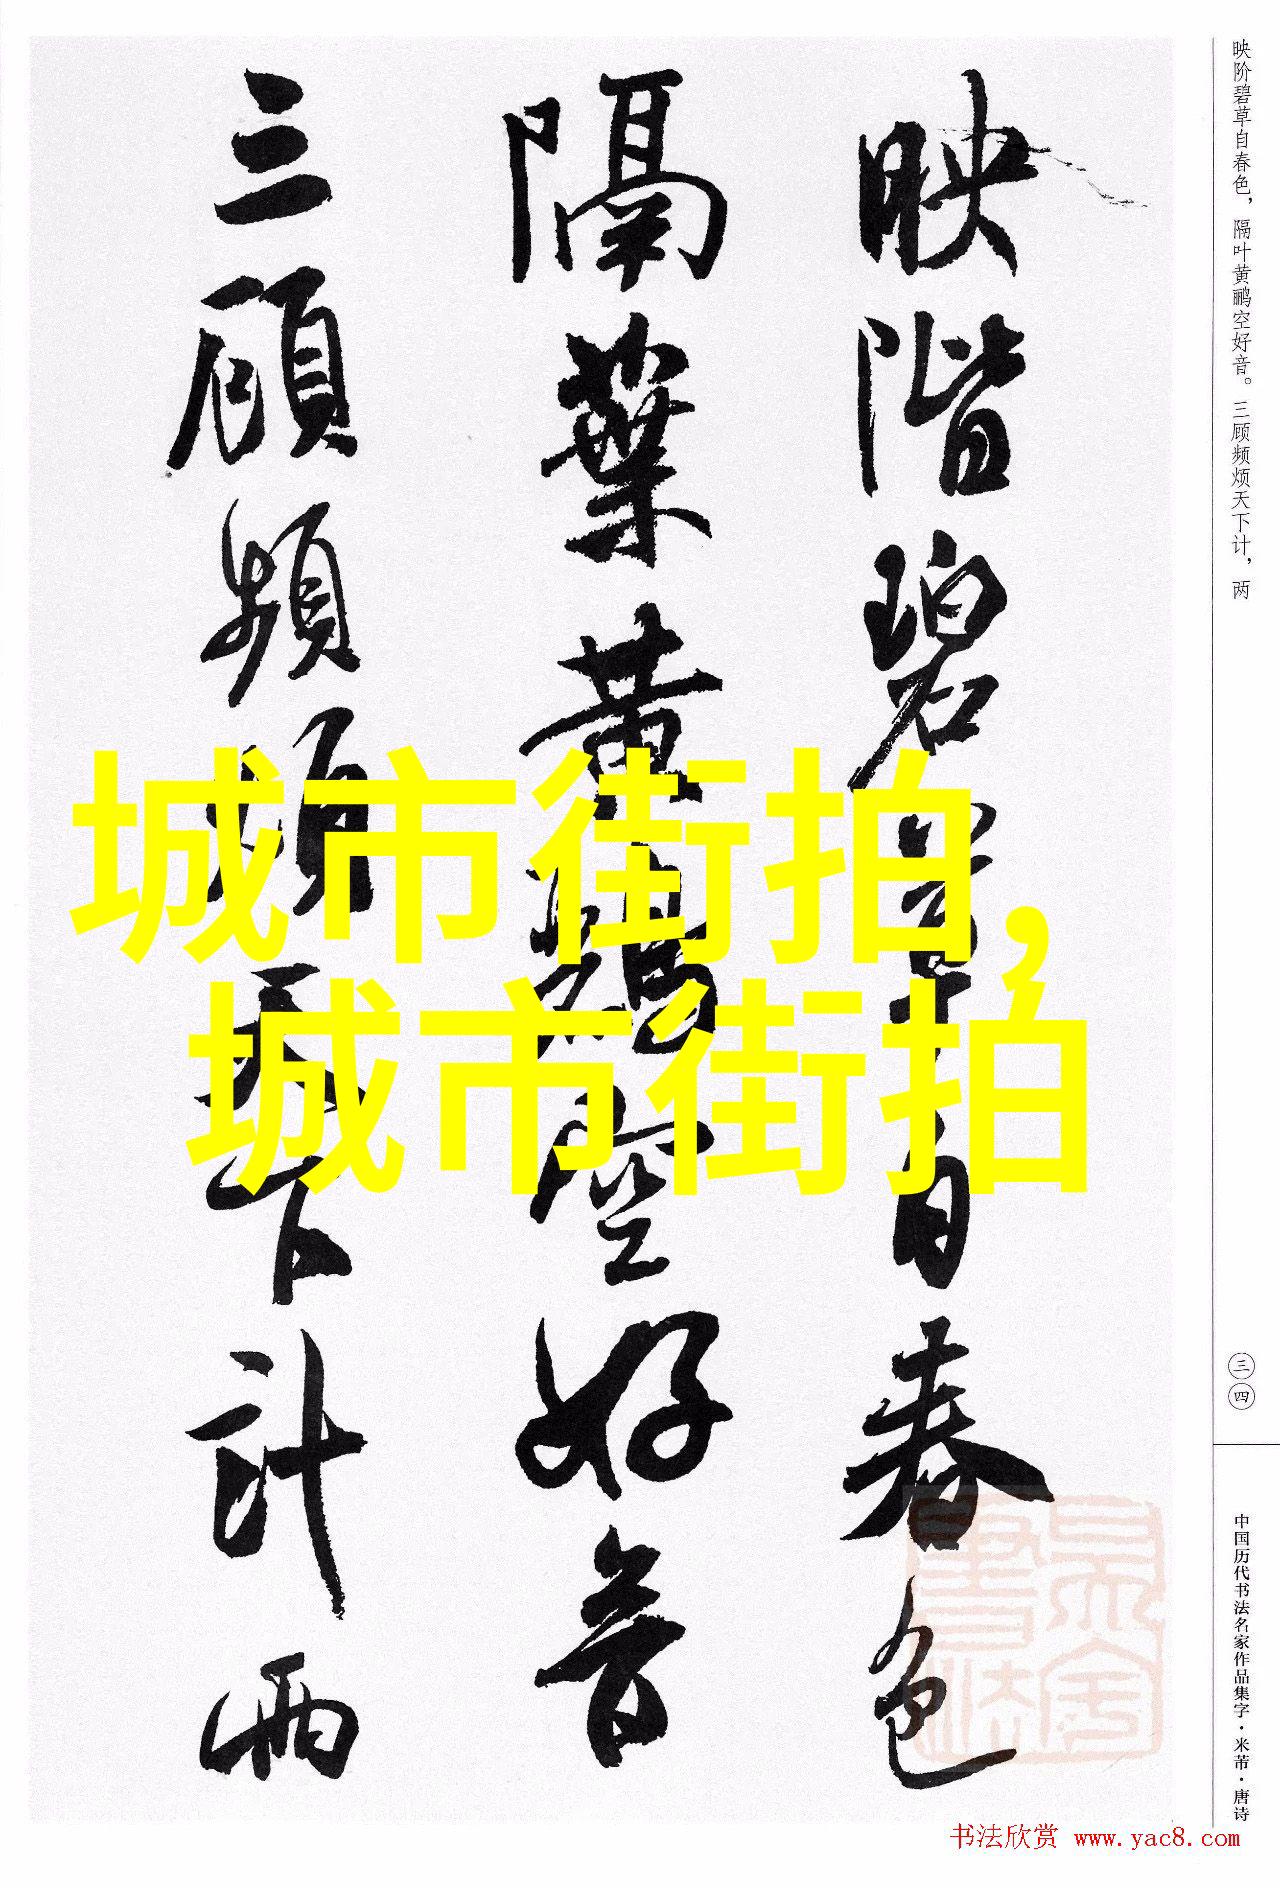 映階碧草自春色
隔葉黃鸝空好音
三顧頻煩天下計兩
城市街拍,
城市街拍
映阶碧草自春色，隔叶黄鹂空好音。三顾频烦天下计，两
三四
中国历代书法名家作品集字·米芾·唐诗
书法欣赏 www.yac8.com